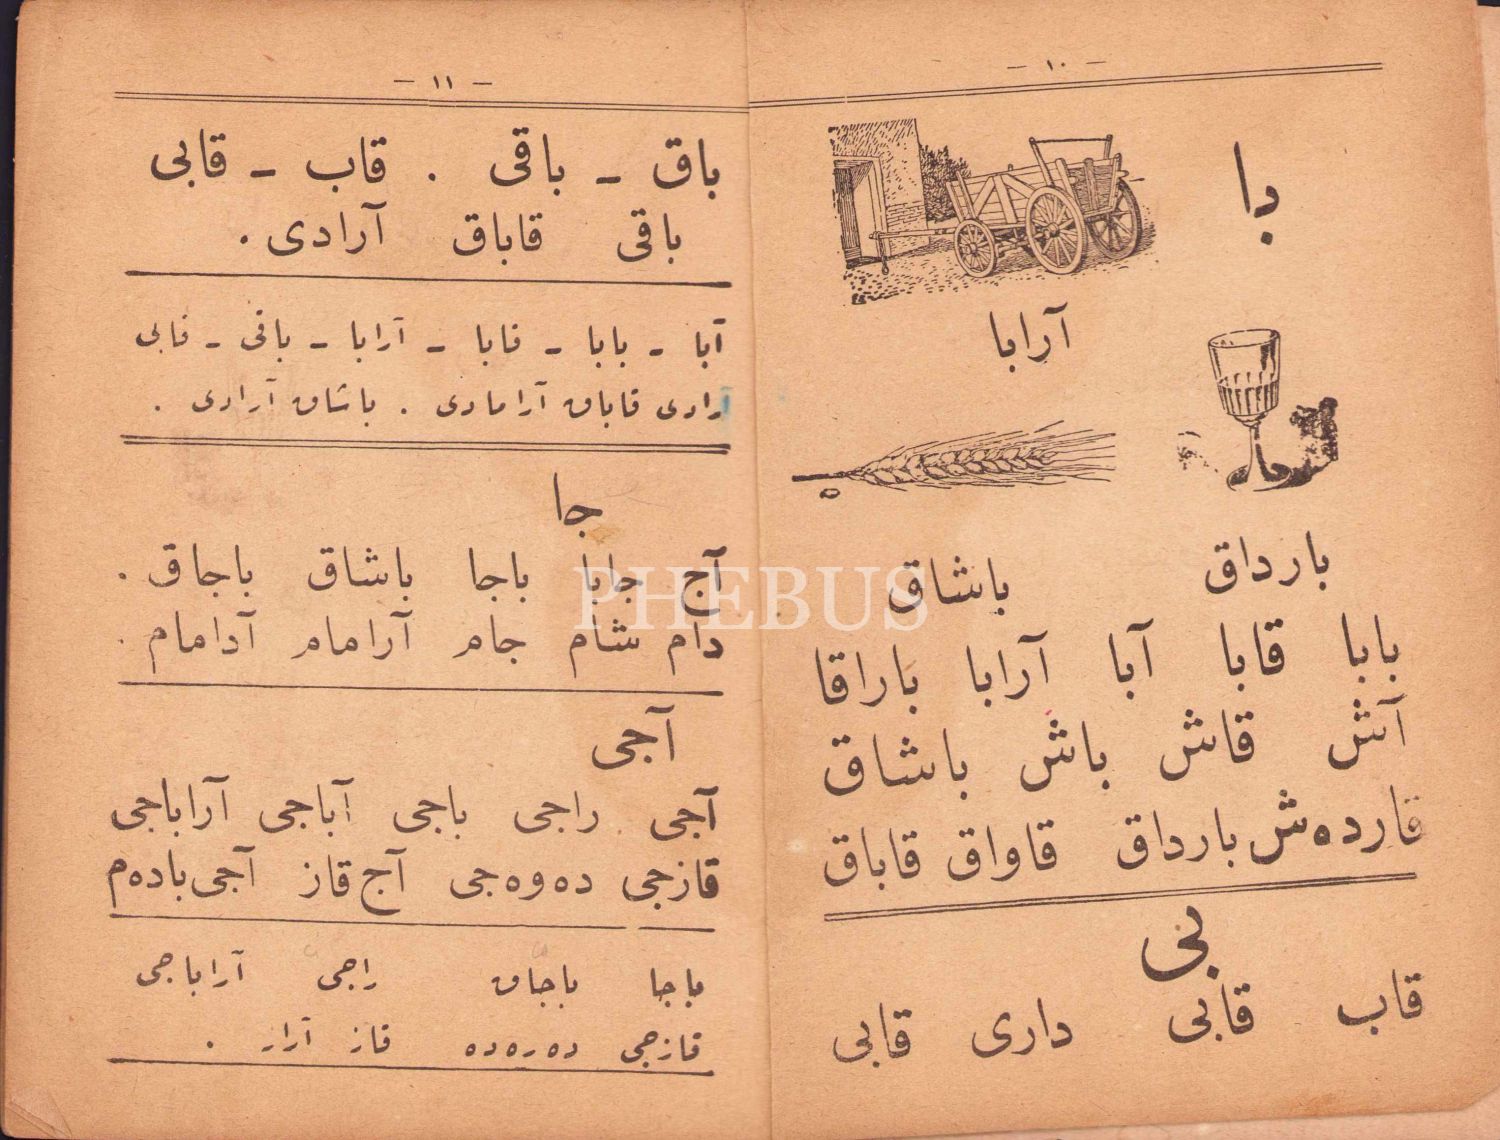 — ١٠ —
با
آرابا
بارداق    باشاق
بابا    قابا    آبا    آرابا    باراقا
آش    قاش    باش    باشاق
قاردەش بارداق    قاواق    قاباق
بی
قاب    قابی    داری    قابی
— ١١ —
باق – باقی . قاب – قابی
باقی    قاباق    آرادی .
آبا – بابا – قابا – آرابا – باقی – قابی
آرادی قاباق آرامادی . باشاق آرادی .
جا
آج    جابا    باجا    باشاق    باجاق .
دام    شام    جام    آرامام    آدامام .
آجی
آجی    راجی    باجی    آباجی    آراباجی
قازجی    دەوەجی    آج قاز    آجی بادەم
باجا    باجاق    راجی    آراباجی
قازجی    دەرەدە    قاز    آرار .
PHEBUS